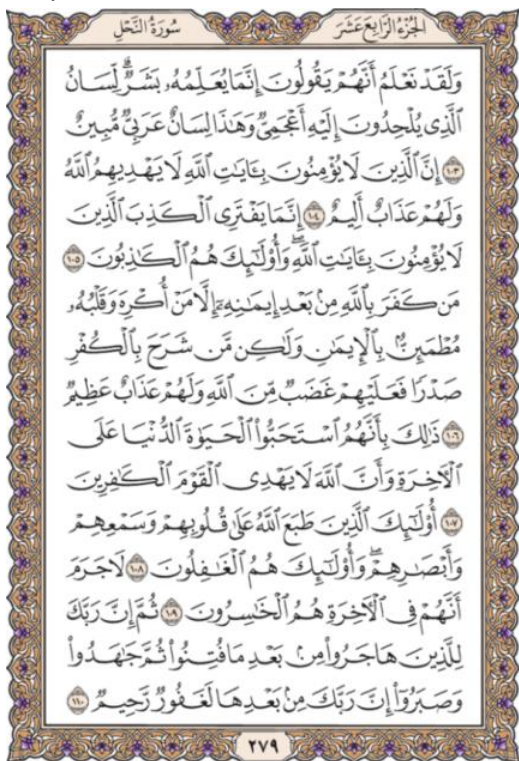 الجزء الرابع عشر
سورة النحل
وَلَقَدْ نَعْلَمُ أَنَّهُمْ يَقُولُونَ إِنَّمَا يُعَلِّمُهُۥ بَشَرٌۗ لِّسَانُ
ٱلَّذِى يُلْحِدُونَ إِلَيْهِ أَعْجَمِىٌّ وَهَـٰذَا لِسَانٌ عَرَبِىٌّ مُّبِينٌ
١٠٣ إِنَّ ٱلَّذِينَ لَا يُؤْمِنُونَ بِـَٔايَـٰتِ ٱللَّهِ لَا يَهْدِيهِمُ ٱللَّهُ
وَلَهُمْ عَذَابٌ أَلِيمٌ ١٠٤ إِنَّمَا يَفْتَرِى ٱلْكَذِبَ ٱلَّذِينَ
لَا يُؤْمِنُونَ بِـَٔايَـٰتِ ٱللَّهِۖ وَأُو۟لَـٰٓئِكَ هُمُ ٱلْكَـٰذِبُونَ ١٠٥
مَن كَفَرَ بِٱللَّهِ مِنۢ بَعْدِ إِيمَـٰنِهِۦٓ إِلَّا مَنْ أُكْرِهَ وَقَلْبُهُۥ
مُطْمَئِنٌّۢ بِٱلْإِيمَـٰنِ وَلَـٰكِن مَّن شَرَحَ بِٱلْكُفْرِ
صَدْرًا فَعَلَيْهِمْ غَضَبٌ مِّنَ ٱللَّهِ وَلَهُمْ عَذَابٌ عَظِيمٌ
١٠٦ ذَٰلِكَ بِأَنَّهُمُ ٱسْتَحَبُّوا۟ ٱلْحَيَوٰةَ ٱلدُّنْيَا عَلَى
ٱلْـَٔاخِرَةِ وَأَنَّ ٱللَّهَ لَا يَهْدِى ٱلْقَوْمَ ٱلْكَـٰفِرِينَ
١٠٧ أُو۟لَـٰٓئِكَ ٱلَّذِينَ طَبَعَ ٱللَّهُ عَلَىٰ قُلُوبِهِمْ وَسَمْعِهِمْ
وَأَبْصَـٰرِهِمْۖ وَأُو۟لَـٰٓئِكَ هُمُ ٱلْغَـٰفِلُونَ ١٠٨ لَا جَرَمَ
أَنَّهُمْ فِى ٱلْـَٔاخِرَةِ هُمُ ٱلْخَـٰسِرُونَ ١٠٩ ثُمَّ إِنَّ رَبَّكَ
لِلَّذِينَ هَاجَرُوا۟ مِنۢ بَعْدِ مَا فُتِنُوا۟ ثُمَّ جَـٰهَدُوا۟
وَصَبَرُوٓا۟ إِنَّ رَبَّكَ مِنۢ بَعْدِهَا لَغَفُورٌ رَّحِيمٌ ١١٠
٢٧٩